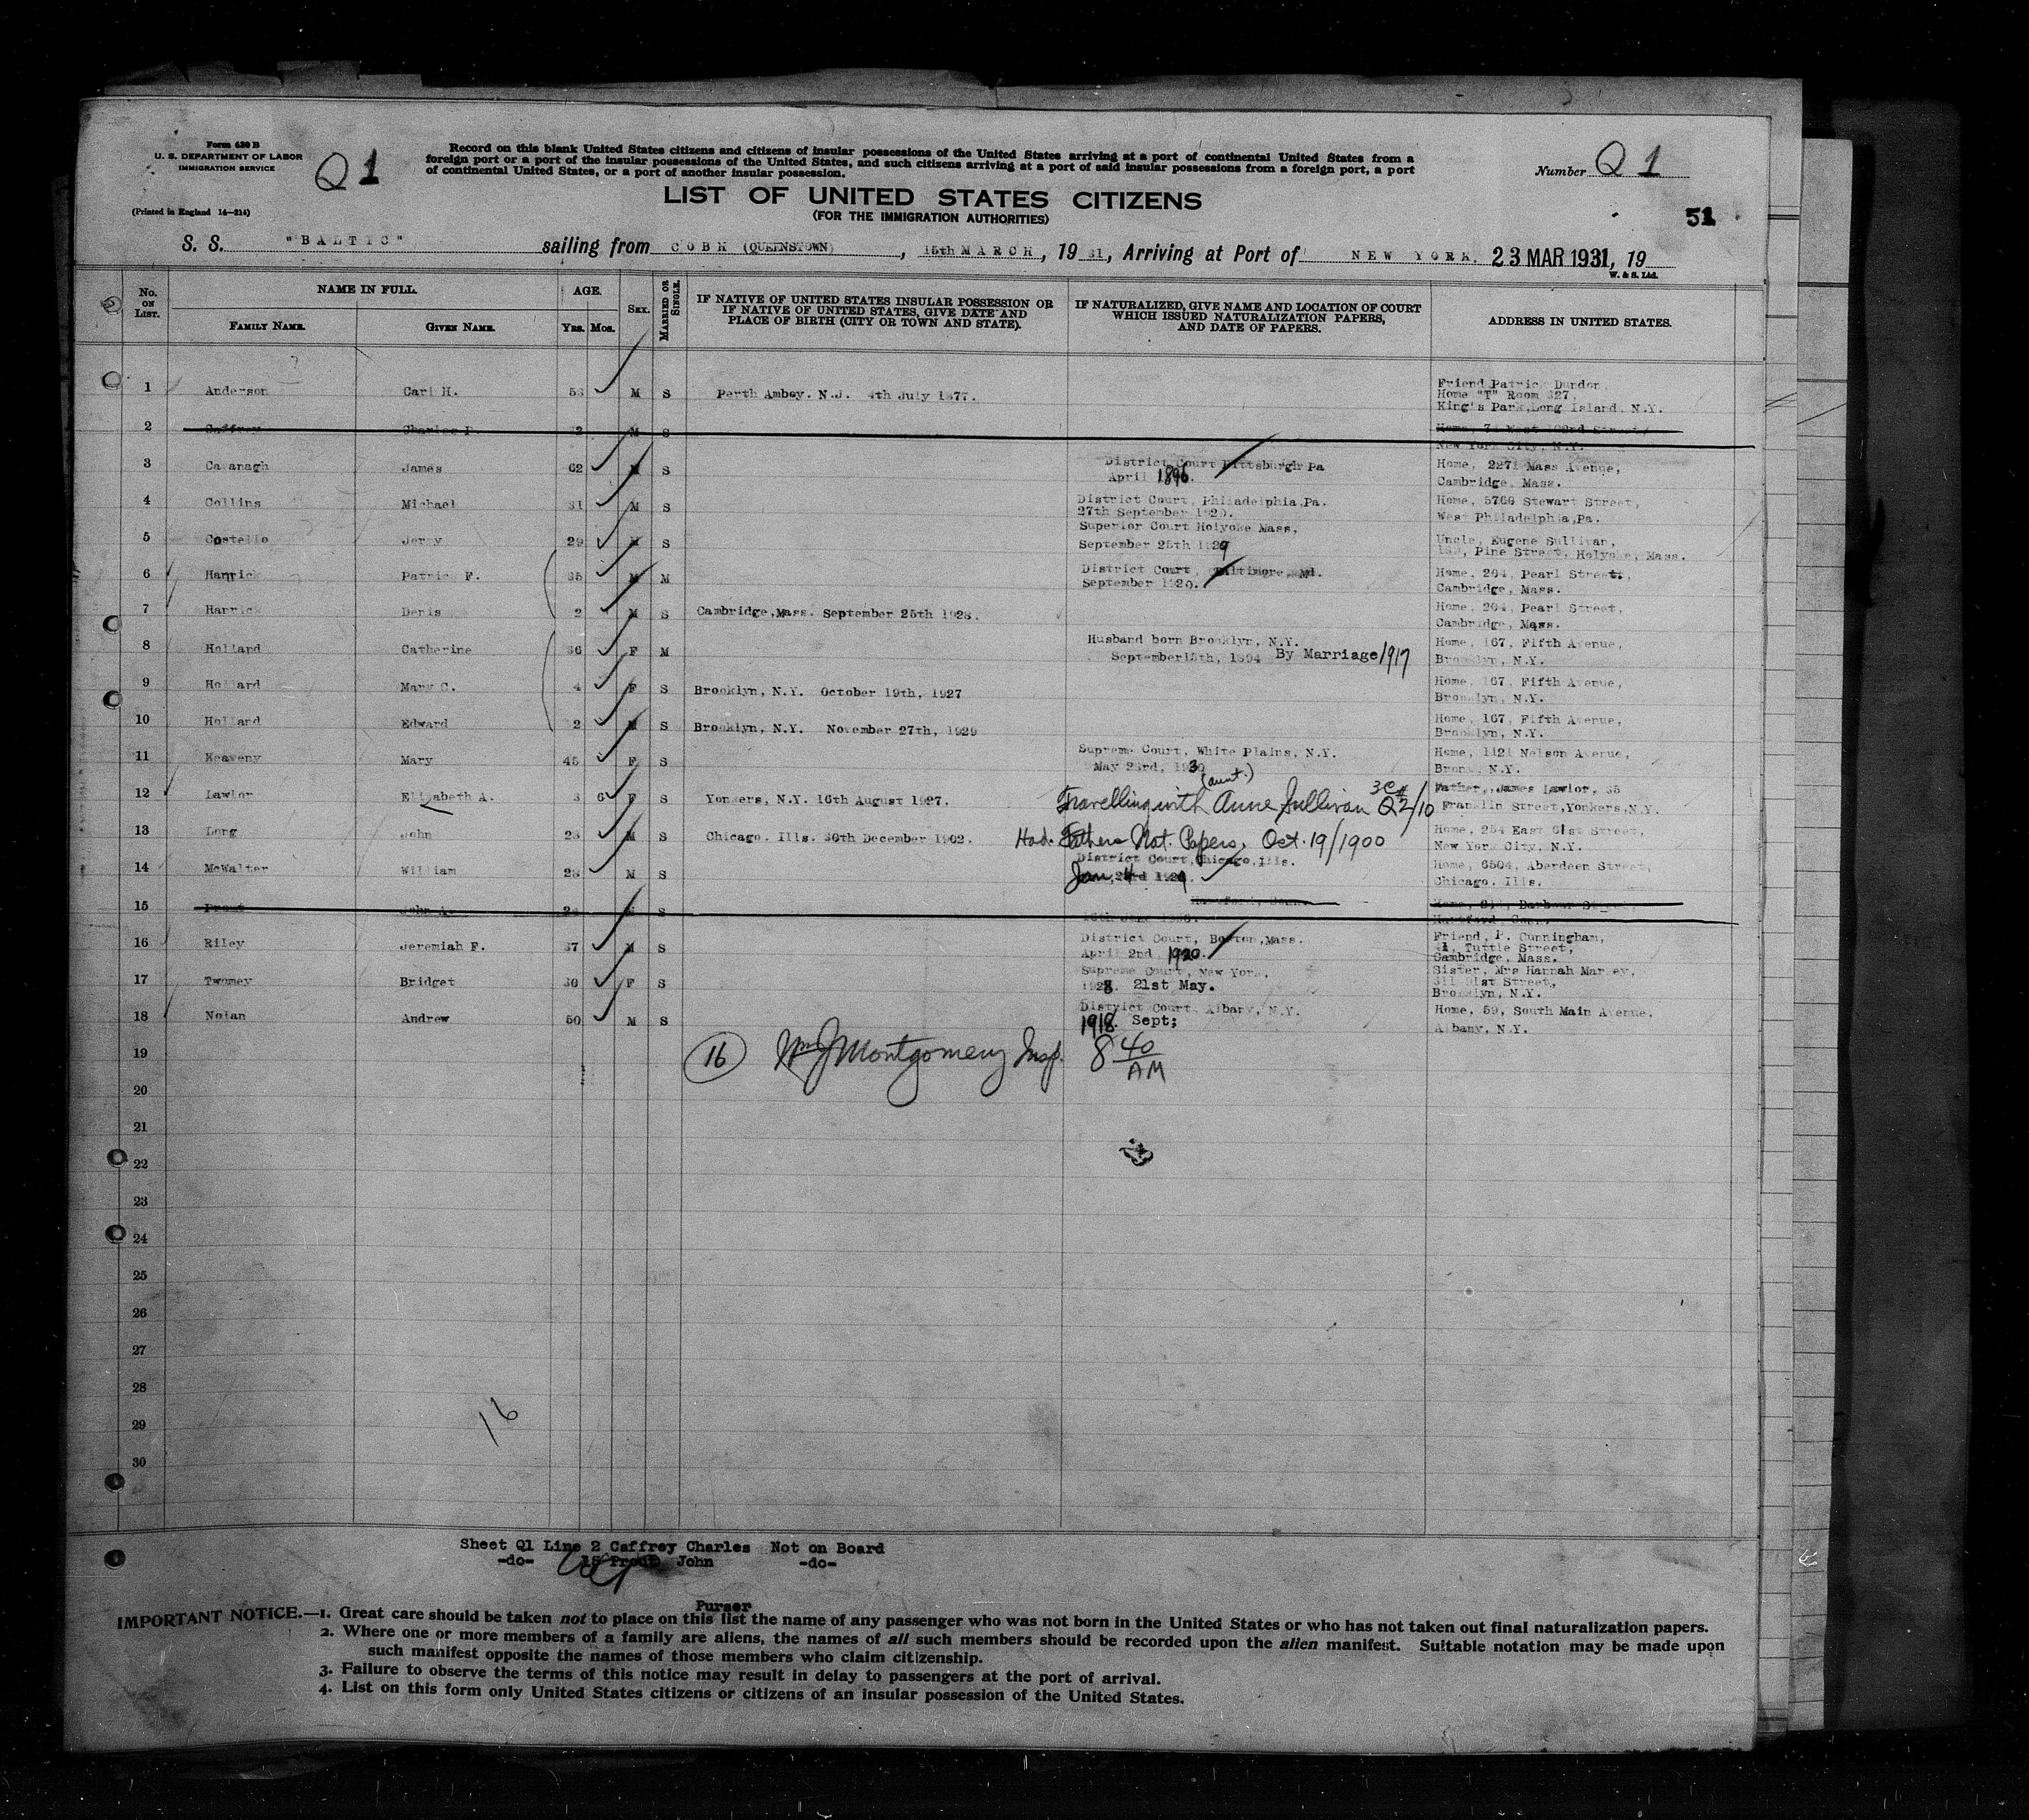 Form 630 B
U. S. DEPARTMENT OF LABOR
IMMIGRATION SERVICE
Q1
(Printed in England 14—214)
Record on this blank United States citizens and citizens of insular possessions of the United States arriving at a port of continental United States from a
foreign port or a port of the insular possessions of the United States, and such citizens arriving at a port of said insular possessions from a foreign port, a port
of continental United States, or a port of another insular possession.
Number Q 1
LIST OF UNITED STATES CITIZENS
(FOR THE IMMIGRATION AUTHORITIES)
51
S. S. "BALTIC" sailing from COBH (QUEENSTOWN), 15th MARCH, 19 31, Arriving at Port of NEW YORK. 23 MAR 1931, 19
W. & S. Ltd.
No. ON LIST. NAME IN FULL. FAMILY NAME. GIVEN NAME. AGE. YRS. MOS. SEX. MARRIED OR SINGLE. IF NATIVE OF UNITED STATES INSULAR POSSESSION OR IF NATIVE OF UNITED STATES, GIVE DATE AND PLACE OF BIRTH (CITY OR TOWN AND STATE). IF NATURALIZED, GIVE NAME AND LOCATION OF COURT WHICH ISSUED NATURALIZATION PAPERS, AND DATE OF PAPERS. ADDRESS IN UNITED STATES.
1 Anderson Carl H. 53 M S Perth Amboy. N.J. 4th July 1877. Friend Patrick Dundon, Home "T" Room 327, King's Park, Long Island, N.Y.
2 Caffrey Charles P. M S New York City, N.Y.
3 Cavanagh James 62 M S District Court Pittsburgh Pa April 1896. Home, 2271 Mass Avenue, Cambridge, Mass.
4 Collins Michael 31 M S District Court, Philadelphia, Pa. 27th September 1920. Home, 5766 Stewart Street, West Philadelphia, Pa.
5 Costello Jerry 29 M S Superior Court Holyoke Mass, September 25th 1929 Uncle, Eugene Sullivan, Pine Street, Holyoke, Mass.
6 Hanrick Patrick F. 35 M M District Court, Baltimore, Md. September 1920. Home, 204, Pearl Street, Cambridge, Mass.
7 Hanrick Denis 2 M S Cambridge, Mass. September 25th 1928. Home, 204, Pearl Street, Cambridge, Mass.
8 Holland Catherine 36 F M Husband born Brooklyn, N.Y. September 15th, 1894 By Marriage 1917 Home, 167, Fifth Avenue, Brooklyn, N.Y.
9 Holland Mary C. 4 F S Brooklyn, N.Y. October 19th, 1927 Home, 167, Fifth Avenue, Brooklyn, N.Y.
10 Holland Edward 2 M S Brooklyn, N.Y. November 27th, 1929 Home, 167, Fifth Avenue, Brooklyn, N.Y.
11 Keaveny Mary 45 F S Supreme Court, White Plains, N.Y. May 23rd, 1930 Home, 1121 Nelson Avenue, Bronx, N.Y.
12 Lawlor Elizabeth A. 3 6 F S Yonkers, N.Y. 16th August 1927. Travelling with (aunt) Anne Sullivan Q2/10 Father, James Lawlor, 35 Franklin Street, Yonkers, N.Y.
13 Long John 28 M S Chicago. Ills. 30th December 1902. Had Fathers Nat. Papers. Oct. 19/1900 Home, 254 East 61st Street, New York City, N.Y.
14 McWalter William 28 M S District Court, Chicago, Ills. Jan, 1929. Home, 6504, Aberdeen Street, Chicago. Ills.
15 Prout John A. 24 M S Hartford, Conn. Hartford, Conn.
16 Riley Jeremiah F. 37 M S District Court, Boston, Mass. April 2nd 1920. Friend, P. Cunningham, 41, Tuttle Street, Cambridge, Mass.
17 Twomey Bridget 30 F S Supreme Court, New York, 1928. 21st May. Sister, Mrs Hannah Street, Brooklyn, N.Y.
18 Nolan Andrew 50 M S District Court, Albany, N.Y. 1918. Sept; Home, 59, South Main Avenue. Albany, N.Y.
19 16 Wm J Montgomery Insp. 8 40 AM
20
21
22
23
24
25
26
27
28
29
16
30
Sheet Q1 Line 2 Caffrey Charles Not on Board
-do- 15 Prout John -do-
Purser
IMPORTANT NOTICE.—1. Great care should be taken not to place on this list the name of any passenger who was not born in the United States or who has not taken out final naturalization papers.
2. Where one or more members of a family are aliens, the names of all such members should be recorded upon the alien manifest. Suitable notation may be made upon
such manifest opposite the names of those members who claim citizenship.
3. Failure to observe the terms of this notice may result in delay to passengers at the port of arrival.
4. List on this form only United States citizens or citizens of an insular possession of the United States.